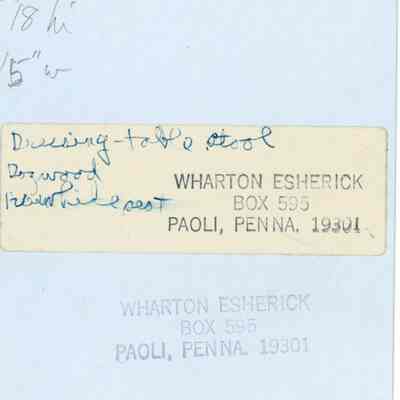 18 hi
15" w
Dressing-table stool
Dogwood
Rawhide seat
WHARTON ESHERICK
BOX 595
PAOLI, PENNA. 19301
WHARTON ESHERICK
BOX 595
PAOLI, PENNA. 19301